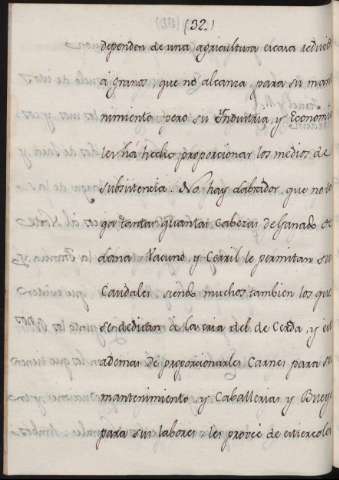 (32.)
dependen de una agricultura escasa reducida
á granos que no alcanza para su man
nimiento pero su Industria y Economia
les há hecho proporcionar los medios de
Subsistencia. No hay Labrador que no ten
ga tantas quantas Cabezas de Ganado
dana Vacuno, y Cerril le permitan su
Caudales siendo muchos tambien los que
se dedican á la cria del de Cerda, y
ademas de proporcionarles Carnes para su
mantenimiento y Caballerias y Bueyes
para sus labores les provee de estiercoles